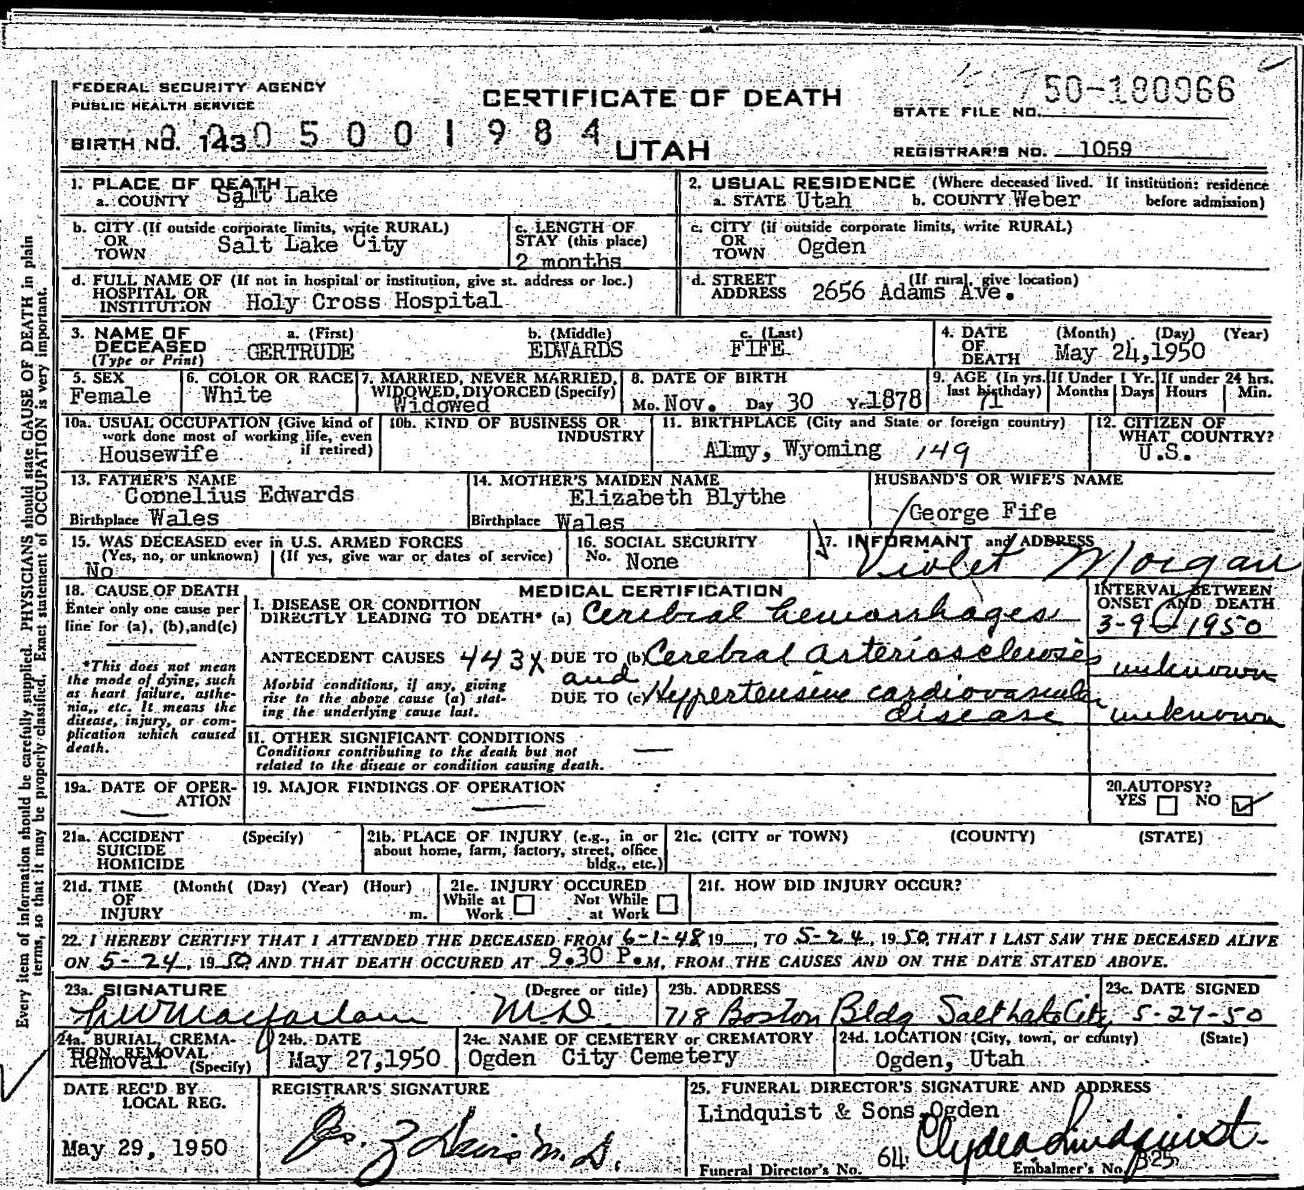 FEDERAL SECURITY AGENCY
PUBLIC HEALTH SERVICE
CERTIFICATE OF DEATH
UTAH
STATE FILE NO. 50-180966
BIRTH NO. 143
0 5 0 0 1 9 8 4
REGISTRAR'S NO. 1059
Every item of information should be carefully supplied. PHYSICIANS should state CAUSE OF DEATH in plain
terms, so that it may be properly classified. Exact statement of OCCUPATION is very important.
1. PLACE OF DEATH
a. COUNTY Salt Lake
2. USUAL RESIDENCE (Where deceased lived. If institution: residence
a. STATE Utah b. COUNTY Weber before admission)
b. CITY (If outside corporate limits, write RURAL)
OR
TOWN Salt Lake City
c. LENGTH OF
STAY (this place)
2 months
c. CITY (if outside corporate limits, write RURAL)
OR
TOWN Ogden
d. FULL NAME OF (If not in hospital or institution, give st. address or loc.)
HOSPITAL OR
INSTITUTION Holy Cross Hospital
d. STREET (If rural, give location)
ADDRESS 2656 Adams Ave.
3. NAME OF a. (First) b. (Middle) c. (Last)
DECEASED
(Type or Print) GERTRUDE EDWARDS FIFE
4. DATE (Month) (Day) (Year)
OF
DEATH May 24,1950
5. SEX
Female
6. COLOR OR RACE
White
7. MARRIED, NEVER MARRIED,
WIDOWED, DIVORCED (Specify)
Widowed
8. DATE OF BIRTH
Mo. Nov. Day 30 Yr. 1878
9. AGE (In yrs.
last birthday)
71
If Under 1 Yr.
Months Days
If under 24 hrs.
Hours Min.
10a. USUAL OCCUPATION (Give kind of
work done most of working life, even
if retired)
Housewife
10b. KIND OF BUSINESS OR
INDUSTRY
11. BIRTHPLACE (City and State or foreign country)
Almy, Wyoming 149
12. CITIZEN OF
WHAT COUNTRY?
U.S.
13. FATHER'S NAME
Cornelius Edwards
Birthplace Wales
14. MOTHER'S MAIDEN NAME
Elizabeth Blythe
Birthplace Wales
HUSBAND'S OR WIFE'S NAME
George Fife
15. WAS DECEASED ever in U.S. ARMED FORCES
(Yes, no, or unknown) (If yes, give war or dates of service)
No
16. SOCIAL SECURITY
No. None
17. INFORMANT and ADDRESS
Violet Morgan
18. CAUSE OF DEATH
Enter only one cause per
line for (a), (b),and(c)
*This does not mean
the mode of dying, such
as heart failure, asthe-
nia,, etc. It means the
disease, injury, or com-
plication which caused
death.
MEDICAL CERTIFICATION
I. DISEASE OR CONDITION
DIRECTLY LEADING TO DEATH* (a) Cerebral hemorrhages
INTERVAL BETWEEN
ONSET AND DEATH
3-9-1950
ANTECEDENT CAUSES 443X DUE TO (b) Cerebral arteriosclerosis unknown
and
Morbid conditions, if any, giving
rise to the above cause (a) stat-
ing the underlying cause last.
DUE TO (c) Hypertensive cardiovascular
disease unknown
II. OTHER SIGNIFICANT CONDITIONS
Conditions contributing to the death but not
related to the disease or condition causing death.
19a. DATE OF OPER-
ATION
19. MAJOR FINDINGS OF OPERATION
20. AUTOPSY?
YES NO
21a. ACCIDENT (Specify)
SUICIDE
HOMICIDE
21b. PLACE OF INJURY (e.g., in or
about home, farm, factory, street, office
bldg., etc.)
21c. (CITY or TOWN) (COUNTY) (STATE)
21d. TIME (Month( (Day) (Year) (Hour)
OF
INJURY m.
21e. INJURY OCCURED
While at Not While
Work at Work
21f. HOW DID INJURY OCCUR?
22. I HEREBY CERTIFY THAT I ATTENDED THE DECEASED FROM 6-1-48 19__, TO 5-24, 1950, THAT I LAST SAW THE DECEASED ALIVE
ON 5-24, 1950, AND THAT DEATH OCCURED AT 9:30 P.M, FROM THE CAUSES AND ON THE DATE STATED ABOVE.
23a. SIGNATURE (Degree or title)
Macfarlane M.D.
23b. ADDRESS
718 Boston Bldg Salt Lake City
23c. DATE SIGNED
5-27-50
24a. BURIAL, CREMA-
TION, REMOVAL
Removal (Specify)
24b. DATE
May 27,1950
24c. NAME OF CEMETERY or CREMATORY
Ogden City Cemetery
24d. LOCATION (City, town, or county) (State)
Ogden, Utah
DATE REC'D BY
LOCAL REG.
May 29, 1950
REGISTRAR'S SIGNATURE
Davis M.D.
25. FUNERAL DIRECTOR'S SIGNATURE AND ADDRESS
Lindquist & Sons Ogden
Clyde Lindquist
Funeral Director's No. 64 Embalmer's No. 325